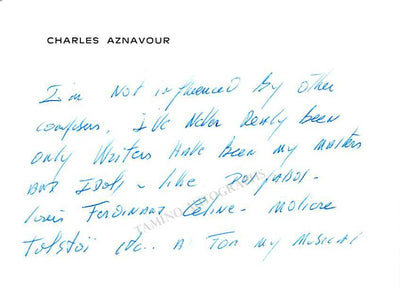 CHARLES AZNAVOUR
I'm not influenced by other
composers, I've never really been
only writers have been my masters
and Idols - like
Louis Ferdinand Céline - Moliere
Tolstoï etc.. A for my musical
TAMINO AUTOGRAPHS